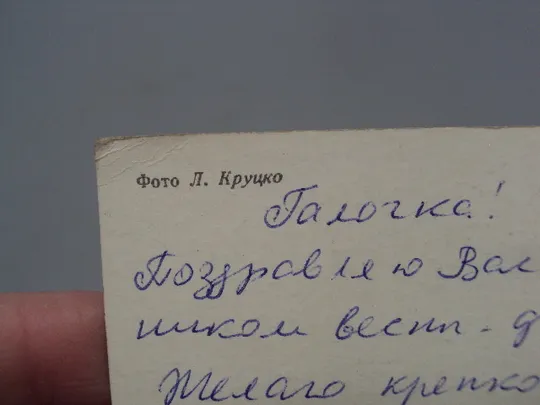 Фото Л. Круцко
Галочка!
Поздравляю Вас
ником весны - д
Желаю крепко